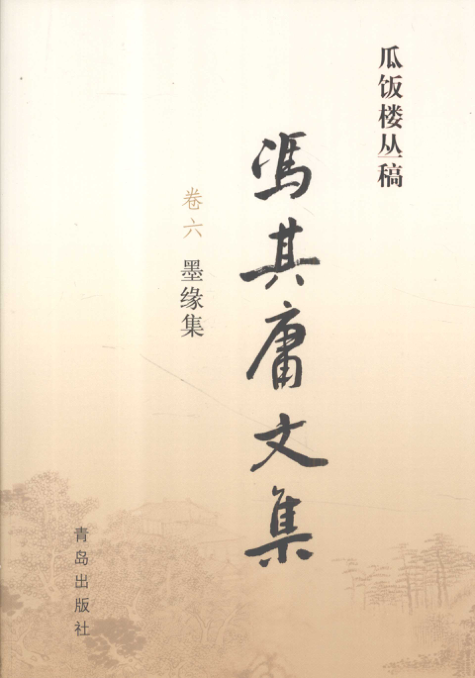 瓜饭楼丛稿
冯其庸文集
卷六 墨缘集
青岛出版社